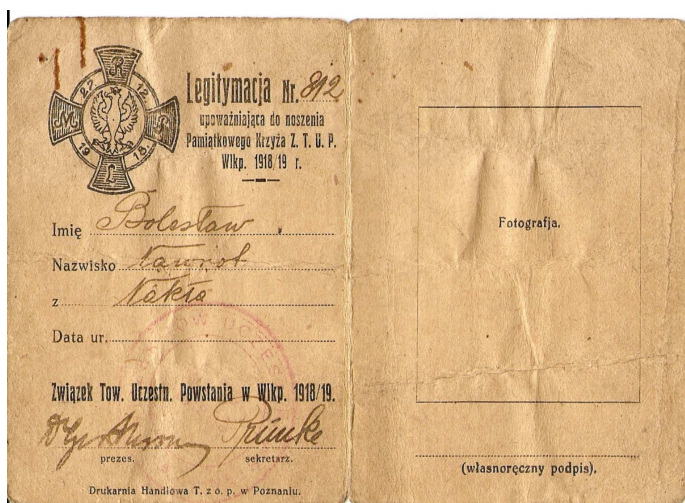 R
27 12.
M S
19 18
L
Legitymacja Nr. 812
upoważniająca do noszenia
Pamiątkowego Krzyża Z. T. U. P.
Wlkp. 1918/19 r.
Imię Bolesław
Nazwisko Nawrot
z Nakła
Data ur.
Związek Tow. Uczestn. Powstania w Wlkp. 1918/19.
prezes. sekretarz.
Drukarnia Handlowa T. z o. p. w Poznaniu.
Fotografja.
(własnoręczny podpis).